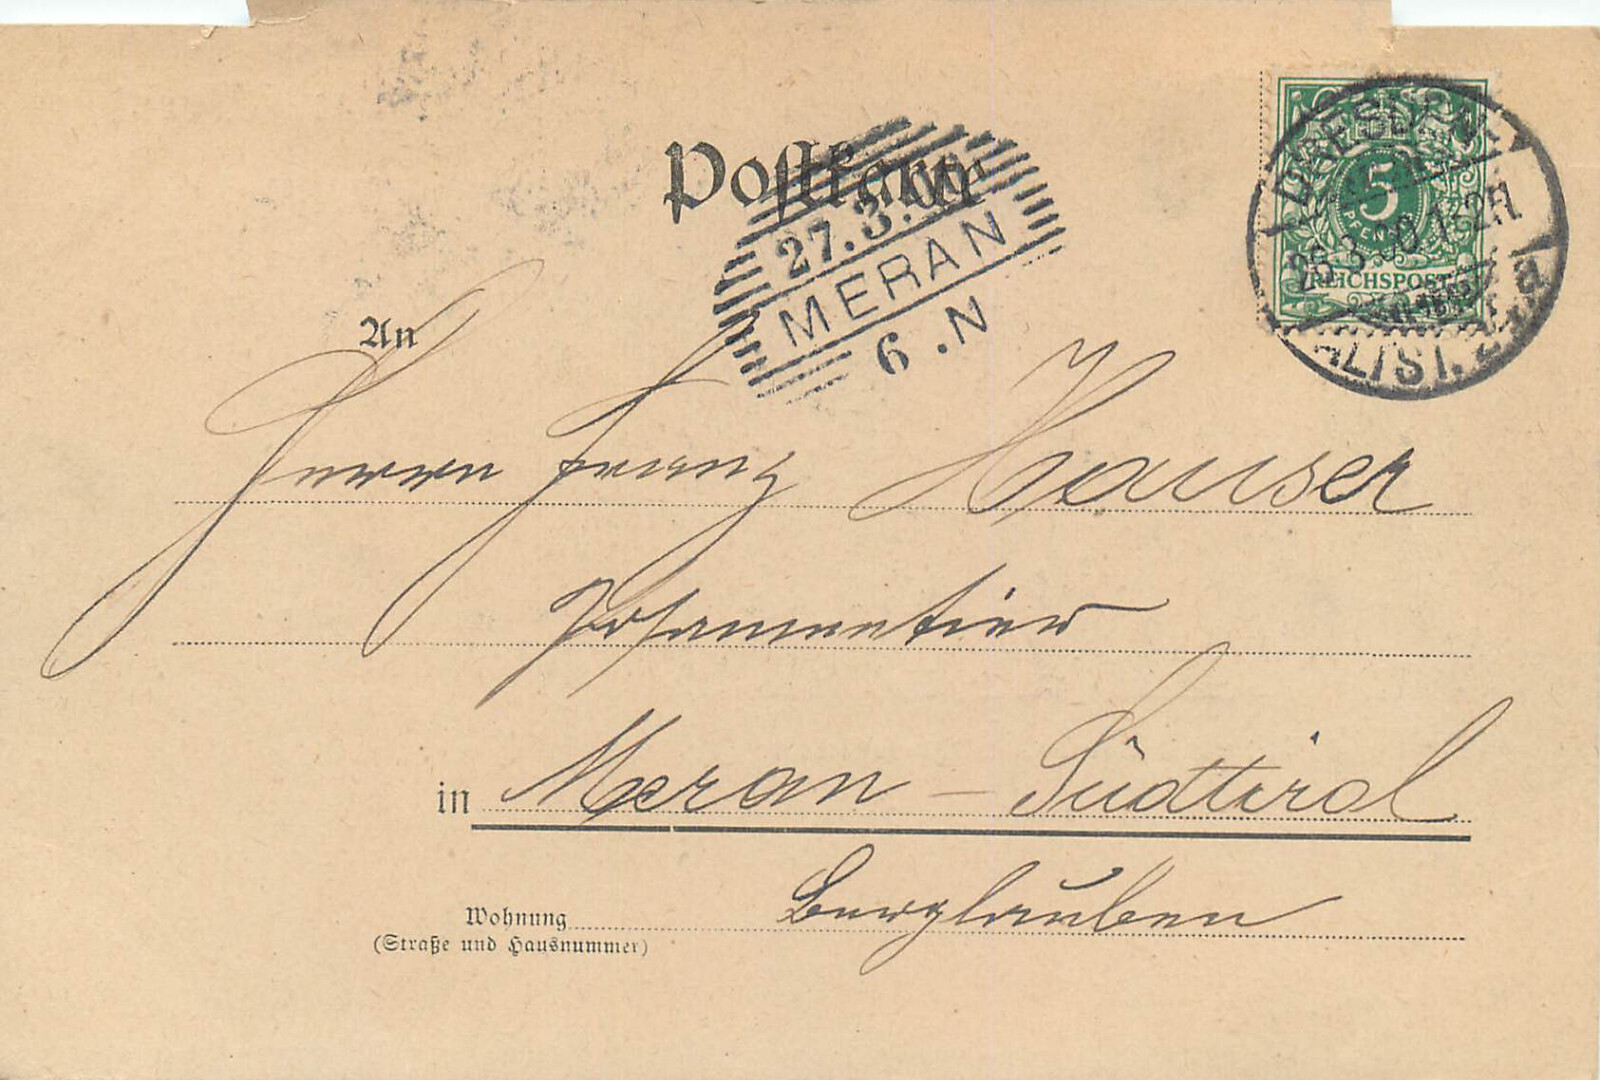 Postkarte
27.3.00
MERAN
6.N
DRESDEN
26.3.00.
ALTST.
a
5
PFENNIG
REICHSPOST
An
Herrn Franz Hauser
Posamentier
in Meran – Südtirol
Wohnung Berglauben
(Straße und Hausnummer)